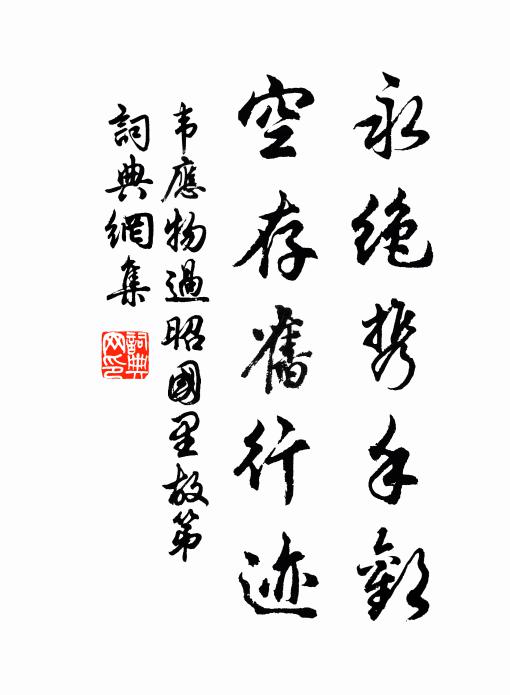 永绝携手歡
空存舊行迹
韦應物過昭國里故第
詞典網集
詞典網印